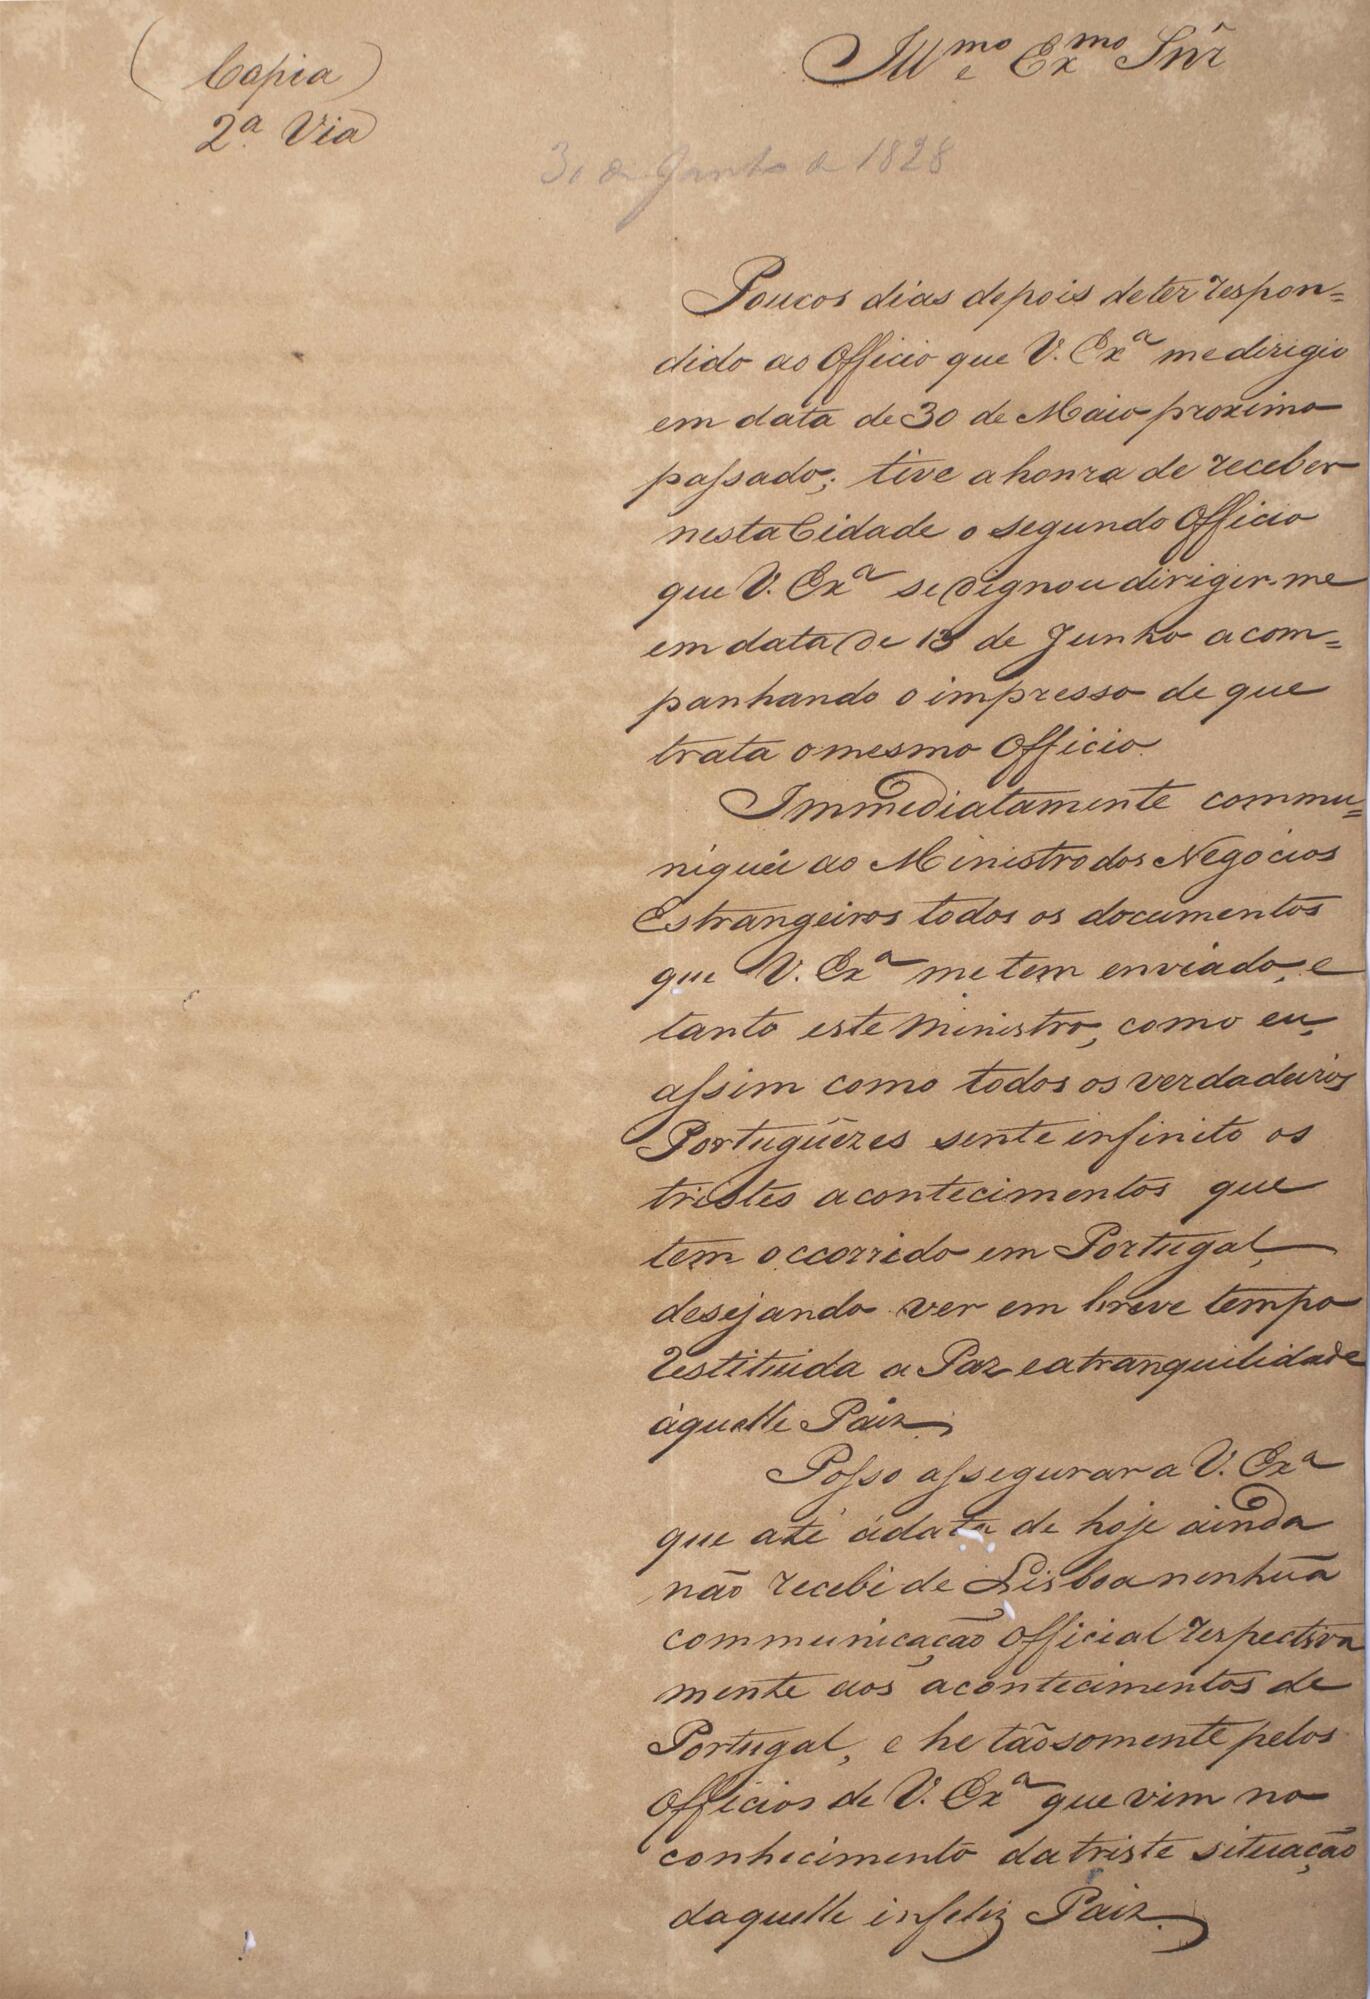 (Copia)
2ª Via
Illmo e Exmo Snr
30 de Junho de 1828
Poucos dias depois de ter respon=
dido ao Officio que V. Exª me dirigio
em data de 30 de Maio proximo
passado; tive a honra de receber
nesta Cidade o segundo Officio
que V. Exª se dignou dirigir-me
em data de 13 de Junho acom=
panhando o impresso de que
trata o mesmo Officio.
Immediatamente commu=
niquei ao Ministro dos Negocios
Estrangeiros todos os documentos
que V. Exª me tem enviado, e
tanto este Ministro, como eu,
assim como todos os verdadeiros
Portuguêzes sente infinito os
tristes acontecimentos que
tem occorrido em Portugal,
desejando ver em breve tempo
restituida a Paz e a tranquilidade
áquelle Paiz.
Posso assegurar a V. Exª
que até ádata de hoje ainda
não recebi de Lisboa nenhũa
communicação official respectiva
mente aos acontecimentos de
Portugal, e he tãosomente pelos
Officios de V. Exª que vim no
conhecimento da triste situação
daquelle infeliz Paiz.